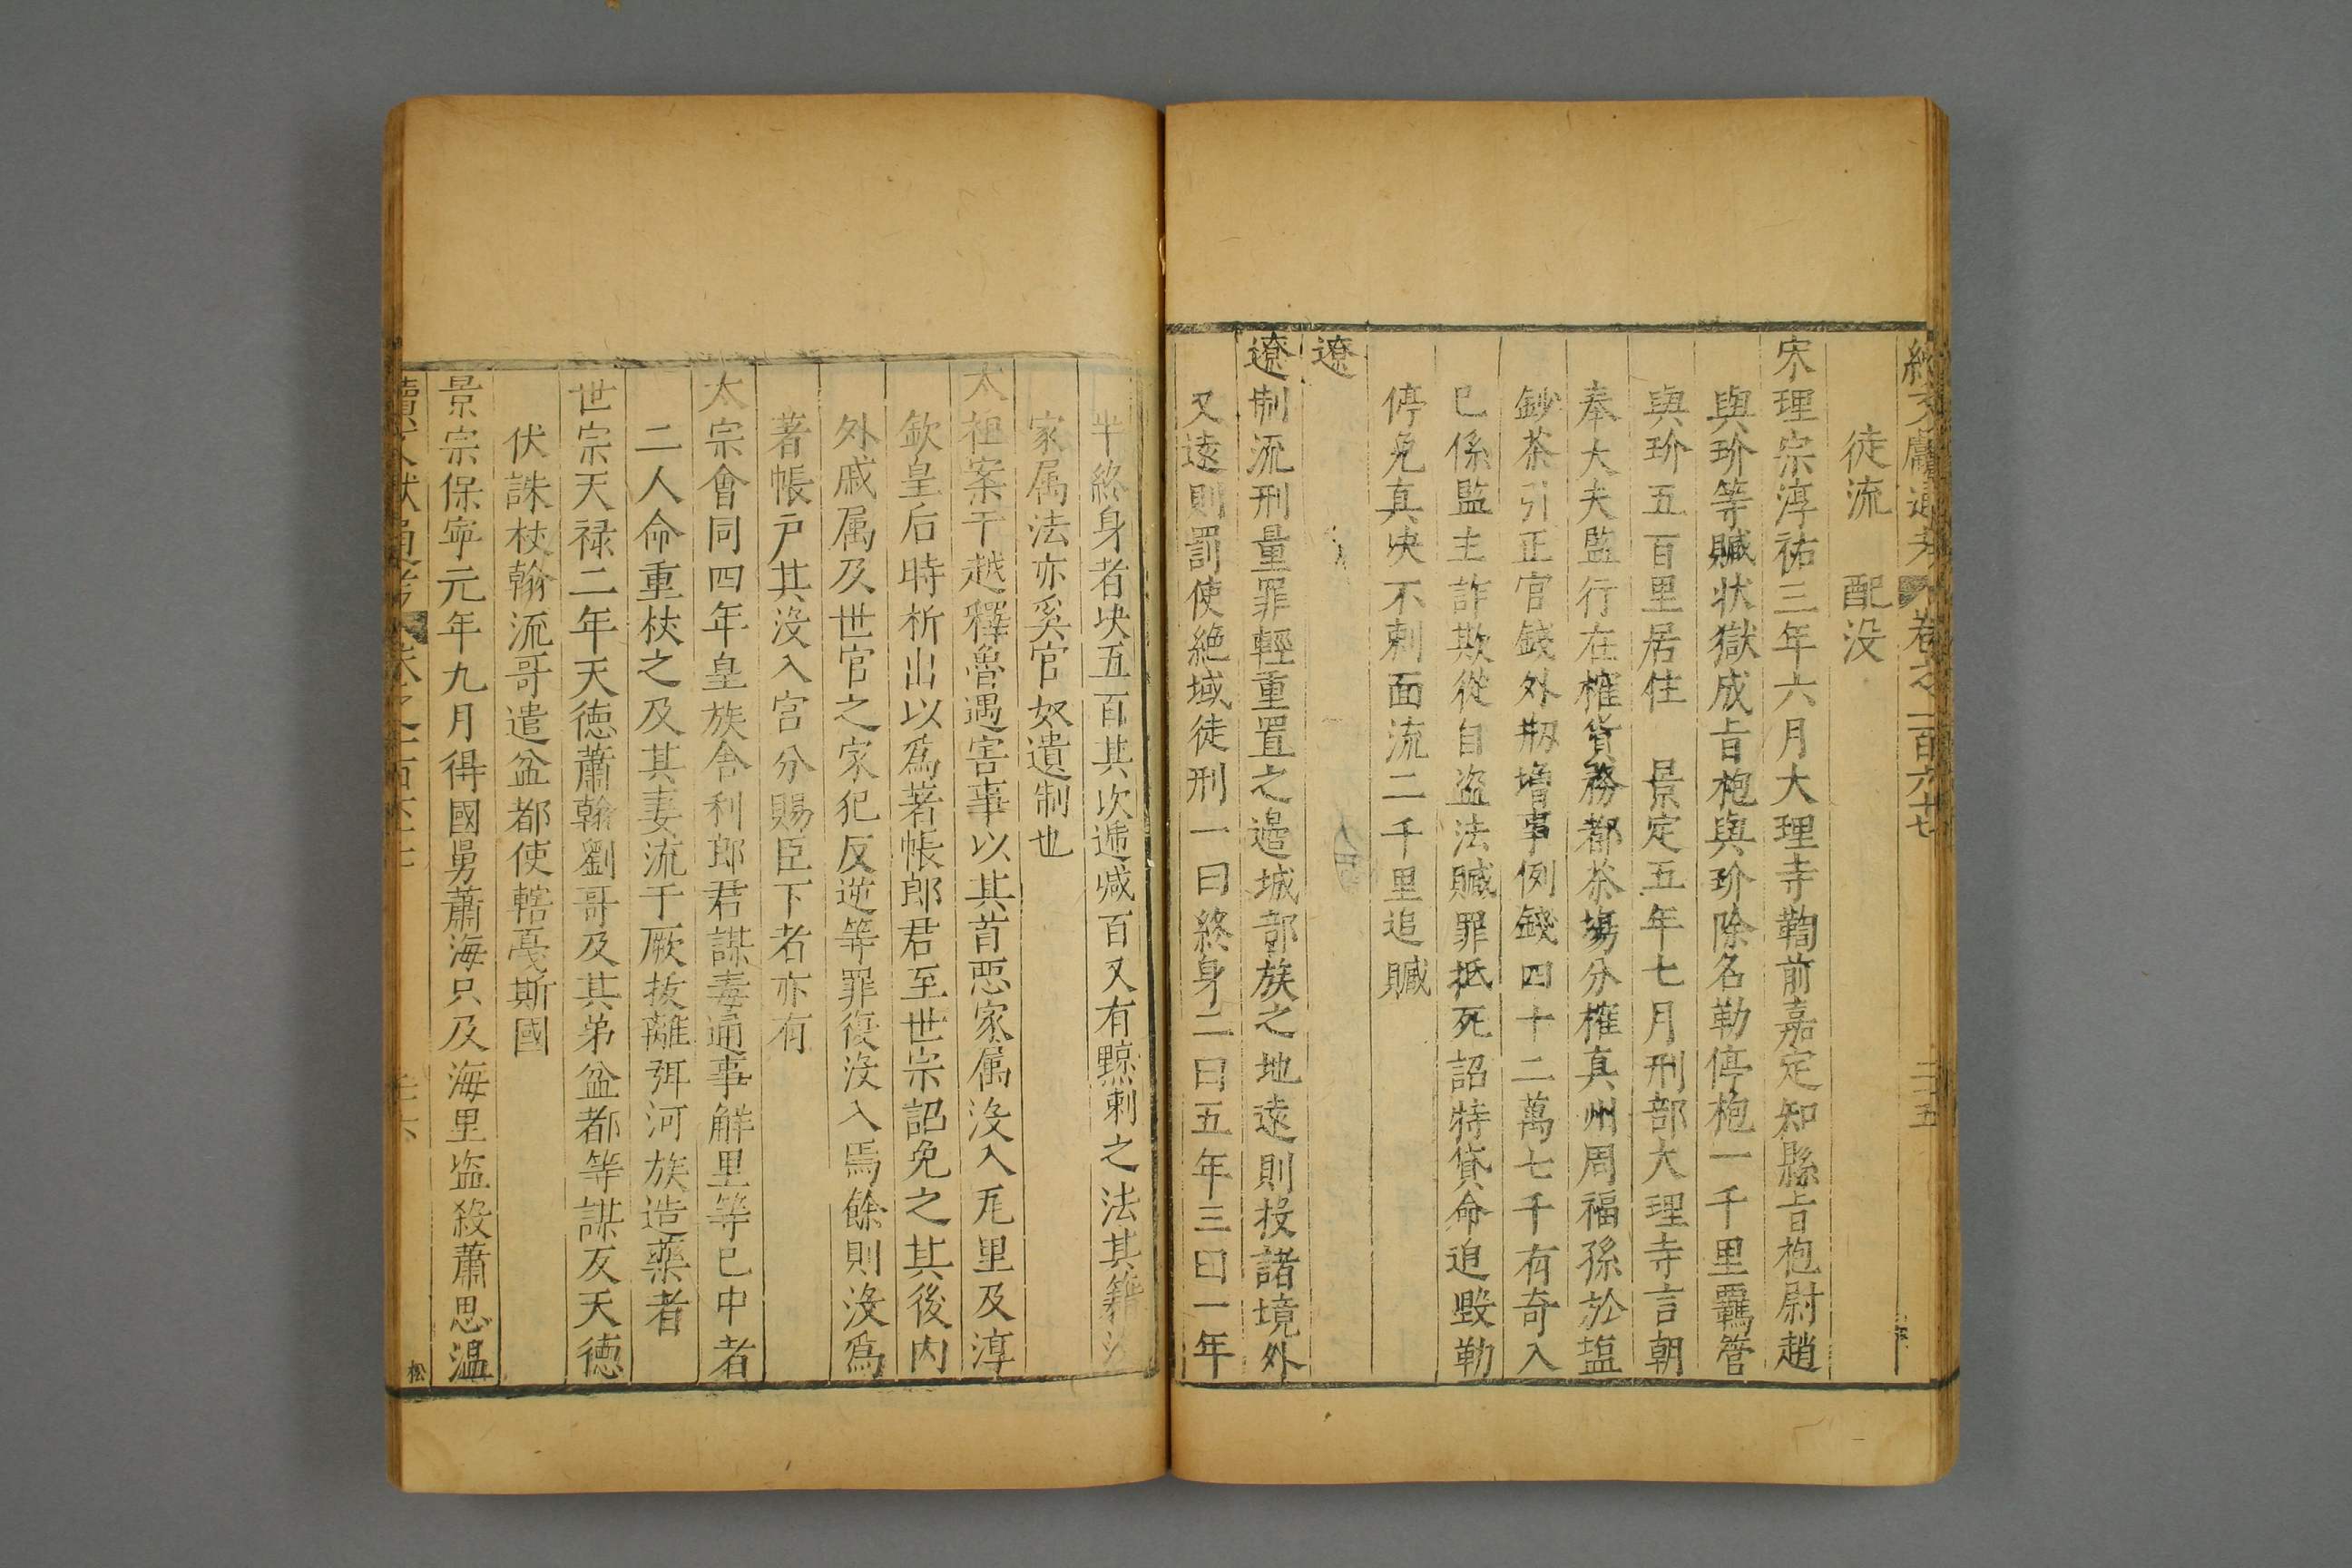 續文獻通考 卷之一百六十七 二十五
徒流 配没
宋理宗淳祐三年六月大理寺鞫前嘉定知縣㫖枹尉趙
與玠等贓状獄成㫖枹與玠除名勒停枹一千里羈管
與玠五百里居住 景定五年七月刑部大理寺言朝
奉大夫監行在榷貨務都茶場分榷真州周福孫於塩
鈔茶引正官錢外剏增事例錢四十二萬七千有奇入
已係監主詐欺從自盗法贓罪抵死詔特貸命追毁勒
停免真决不刺面流二千里追贓
遼
遼制流刑量罪輕重置之邉城部族之地遠則投諸境外
又遠則罰使絶域徒刑一曰終身二曰五年三曰一年
半終身者决五百其次遞减百又有黥刺之法其籍没
家属法亦奚官奴遺制也
太祖案于越釋魯遇害事以其首惡家属没入瓦里及淳
欽皇后時析出以為著帳郎君至世宗詔免之其後内
外戚属及世官之家犯反逆等罪復没入焉餘則没為
著帳户其没入宫分賜臣下者亦有
太宗會同四年皇族舎利郎君謀毒通事解里等已中者
二人命重杖之及其妻流于厥拔離弭河族造藥者
世宗天禄二年天徳蕭翰劉哥及其弟盆都等謀反天徳
伏誅杖翰流哥遣盆都使轄戛斯國
景宗保寧元年九月得國舅蕭海只及海里盗殺蕭思温
續文獻通考 卷之一百六十七 二十六
松